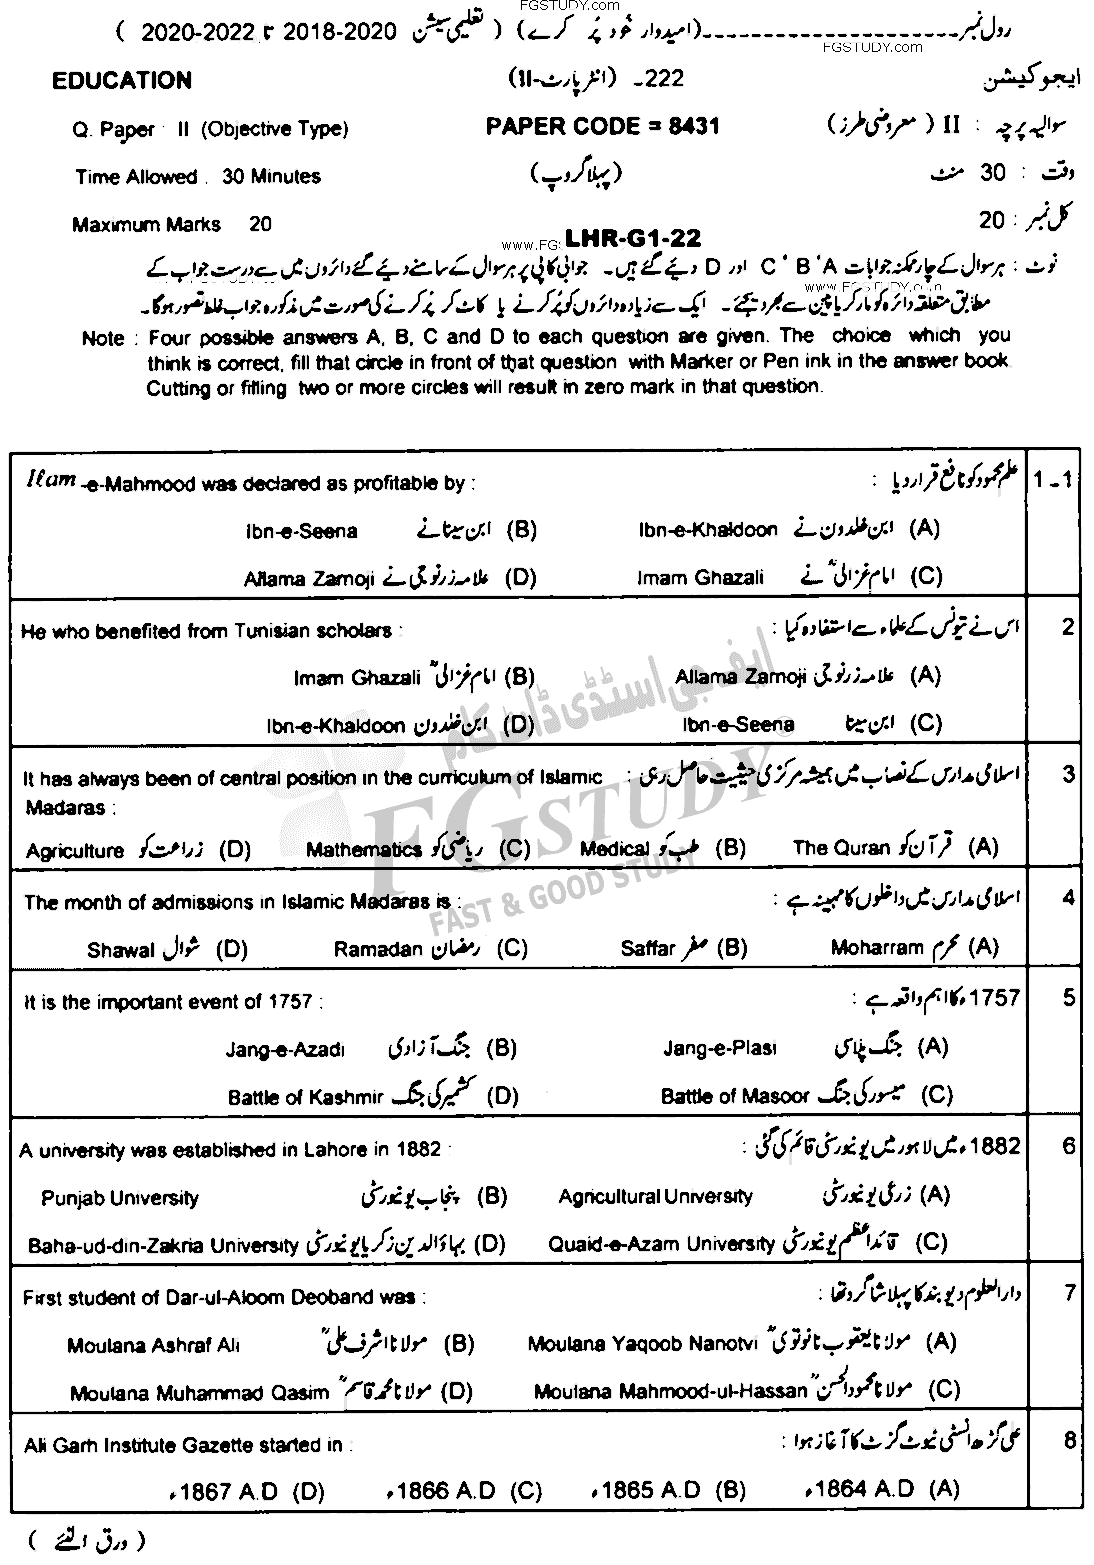 FGSTUDY.com
رول نمبر ـــــــــــــــــــــــ (امیدوار خود پُر کرے) ( تعلیمی سیشن 2018-2020 تا 2020-2022 )
FGSTUDY.com
EDUCATION 222ـ (انٹر پارٹ-II) ایجوکیشن
Q. Paper : II (Objective Type) PAPER CODE = 8431 سوالیہ پرچہ : II ( معروضی طرز )
Time Allowed . 30 Minutes (پہلا گروپ) وقت : 30 منٹ
Maximum Marks 20 کل نمبر : 20
www.FG LHR-G1-22
نوٹ : ہر سوال کے چار ممکنہ جوابات A ' B ' C اور D دیئے گئے ہیں۔ جوابی کاپی پر ہر سوال کے سامنے دیئے گئے دائروں میں سے درست جواب کے
www.FGSTUDY.com
مطابق متعلقہ دائرہ کو مارکر یا پین سے بھر دیجئے۔ ایک سے زیادہ دائروں کو پُر کرنے یا کاٹ کر پُر کرنے کی صورت میں مذکورہ جواب غلط تصور ہوگا۔
Note : Four possible answers A, B, C and D to each question are given. The choice which you
think is correct, fill that circle in front of that question with Marker or Pen ink in the answer book.
Cutting or filling two or more circles will result in zero mark in that question.
Ilam -e-Mahmood was declared as profitable by : علم محمود کو نافع قرار دیا : 1 ـ 1
Ibn-e-Seena ابن سینا نے (B) Ibn-e-Khaldoon ابن خلدون نے (A)
Allama Zarnoji علامہ زرنوجی نے (D) Imam Ghazali امام غزالیؒ نے (C)
He who benefited from Tunisian scholars : اس نے تیونس کے علماء سے استفادہ کیا : 2
Imam Ghazali امام غزالیؒ (B) Allama Zarnoji علامہ زرنوجی (A)
Ibn-e-Khaldoon ابن خلدون (D) Ibn-e-Seena ابن سینا (C)
It has always been of central position in the curriculum of Islamic اسلامی مدارس کے نصاب میں ہمیشہ مرکزی حیثیت حاصل رہی : 3
Madaras :
Agriculture زراعت کو (D) Mathematics ریاضی کو (C) Medical طب کو (B) The Quran قرآن کو (A)
The month of admissions in Islamic Madaras is : اسلامی مدارس میں داخلوں کا مہینہ ہے : 4
Shawal شوال (D) Ramadan رمضان (C) Saffar صفر (B) Moharram محرم (A)
It is the important event of 1757 : 1757ء کا اہم واقعہ ہے : 5
Jang-e-Azadi جنگ آزادی (B) Jang-e-Plasi جنگ پلاسی (A)
Battle of Kashmir کشمیر کی جنگ (D) Battle of Masoor میسور کی جنگ (C)
A university was established in Lahore in 1882 : 1882ء میں لاہور میں یونیورسٹی قائم کی گئی : 6
Punjab University پنجاب یونیورسٹی (B) Agricultural University زرعی یونیورسٹی (A)
Baha-ud-din-Zakria University بہاؤالدین زکریا یونیورسٹی (D) Quaid-e-Azam University قائداعظم یونیورسٹی (C)
First student of Dar-ul-Aloom Deoband was : دارالعلوم دیوبند کا پہلا شاگرد تھا : 7
Moulana Ashraf Ali مولانا اشرف علیؒ (B) Moulana Yaqoob Nanotvi مولانا یعقوب نانوتویؒ (A)
Moulana Muhammad Qasim مولانا محمد قاسمؒ (D) Moulana Mahmood-ul-Hassan مولانا محمود الحسنؒ (C)
Ali Garh Institute Gazette started in : علی گڑھ انسٹی ٹیوٹ گزٹ کا آغاز ہوا : 8
ء1867 A.D (D) ء1866 A.D (C) ء1865 A.D (B) ء1864 A.D (A)
( ورق الٹئے )
ایف جی اسٹڈی ڈاٹ کام
FGSTUDY
FAST & GOOD STUDY